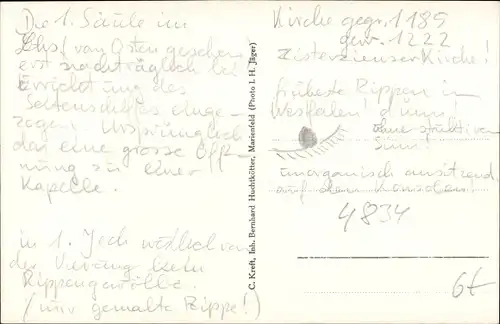 Die 1. Säule im
Chsf. van Osten gesehen
erst nachträglich bei
Errichtung des
Seitenschiffes einge-
zogen! Ursprünglich
das eine grosse Öff-
nung zu einer
Kapelle.
in 1. Joch westlich von
der Vierung kein
Rippengewölbe
(nur gemalte Rippe!)
C. Kreft, Inh. Bernhard Huchtkötter, Marienfeld (Photo I. H. Jäger)
Kirche gegr. 1185
gew. 1222
Zisterzienser Kirche!
früheste Rippen in
Westfalen! dünn!
ohne struktiven
Sinn!
unorganisch ansitzend
auf den Konsolen!
4834
6f